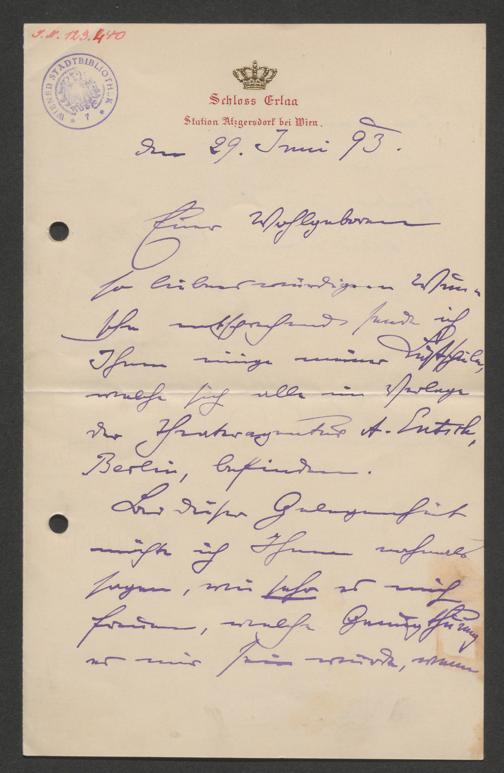 I.N. 123.440
WIENER STADTBIBLIOTHEK
7
Schloss Erlaa
Station Atzgersdorf bei Wien.
den 29. Juni 93.
Euer Wohlgeboren
so liebenswürdigem Wun-
sche entsprechend sende ich
Ihnen einige meiner Lustspiele,
welche sich alle im Verlage
der Theateragentur A. Entsch,
Berlin, befinden.
Bei dieser Gelegenheit
möchte ich Ihnen nochmals
sagen, wie sehr es mich
freuen, welche Genugthuung
es mir sein würde, wenn